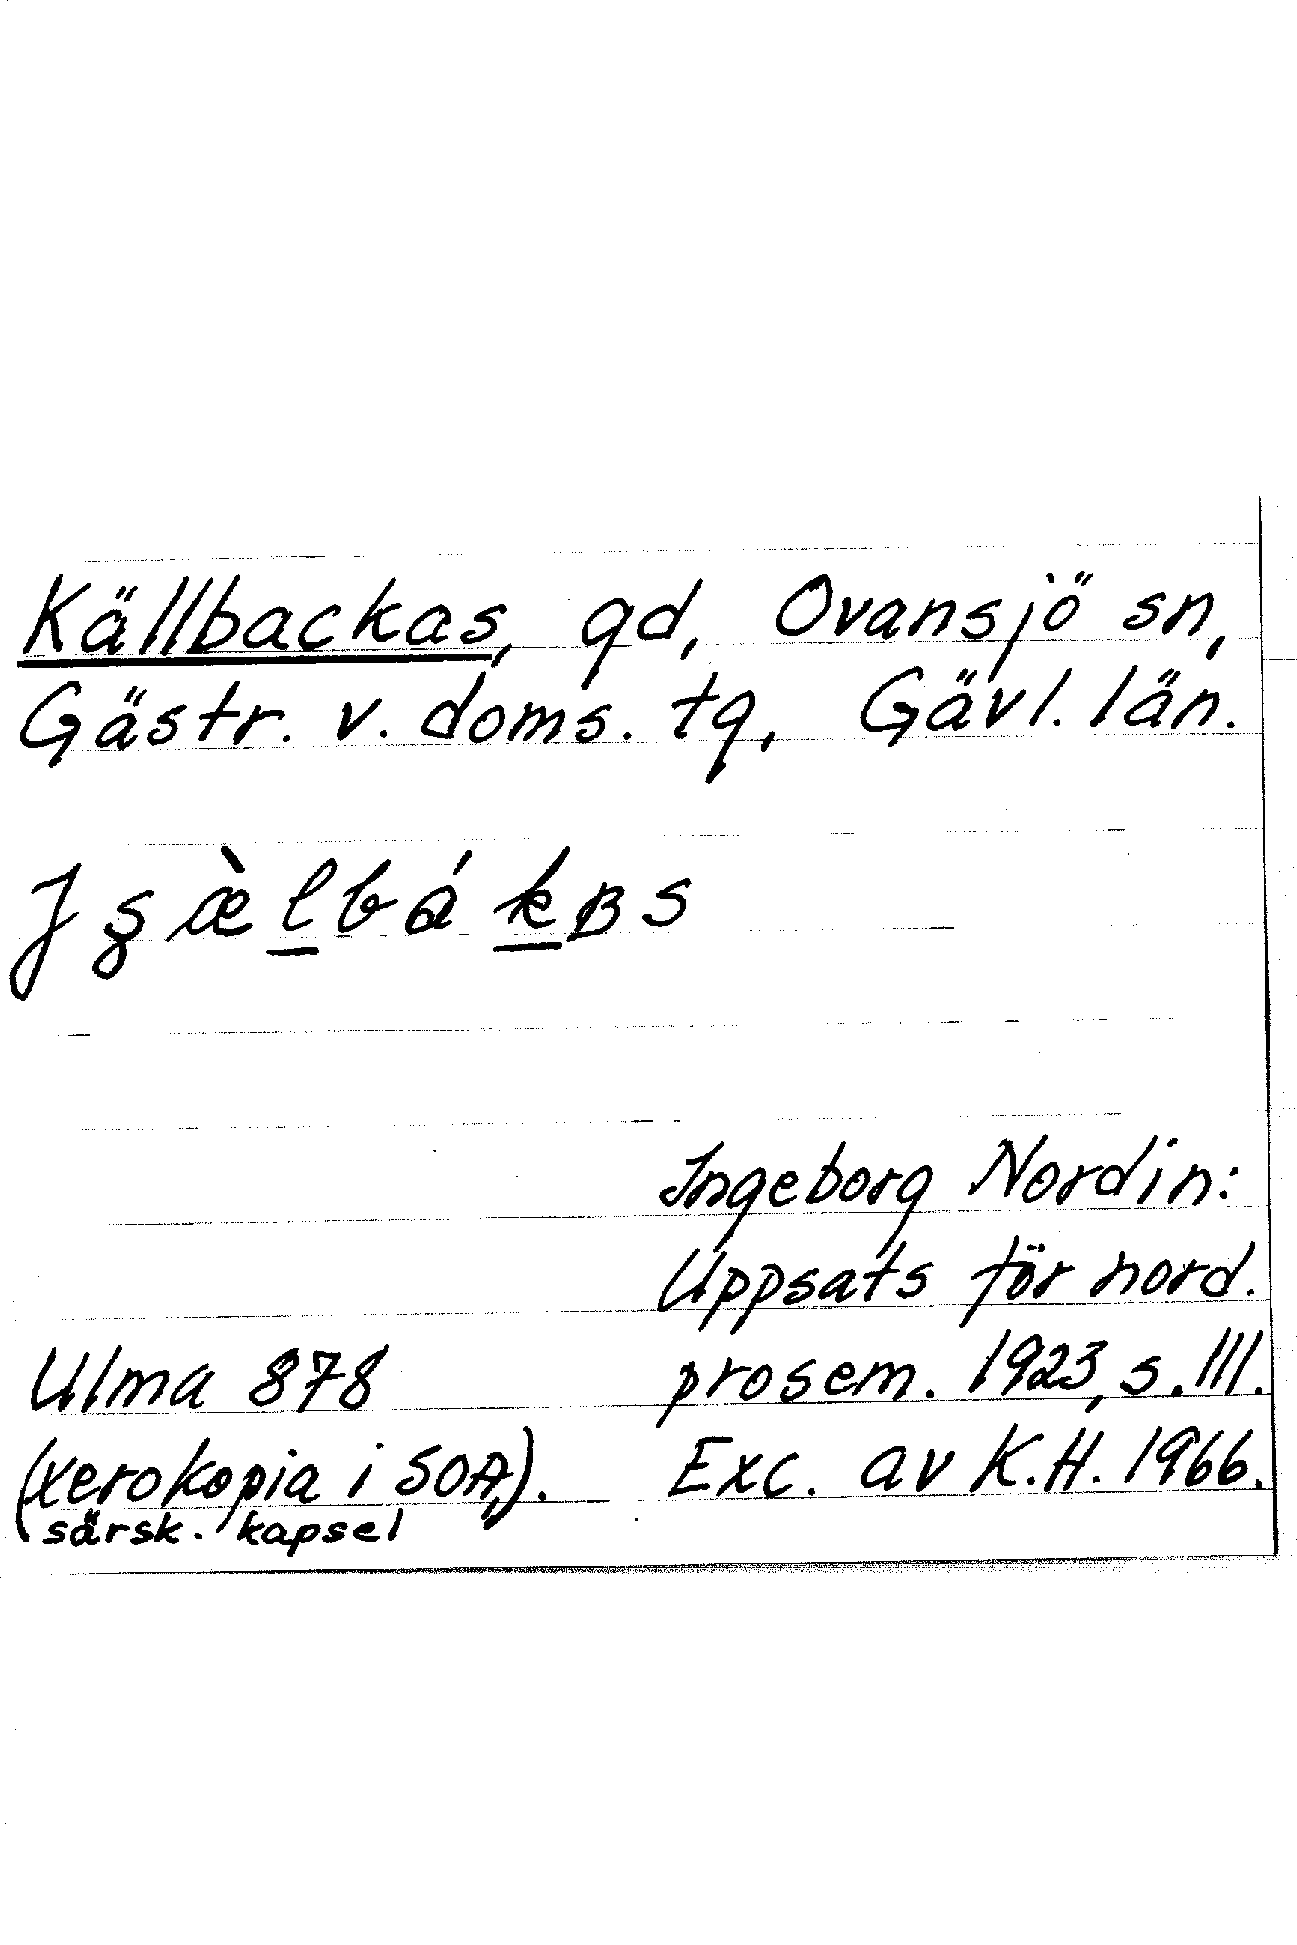 Källbackas, gd, Ovansjö sn,
Gästr. v. doms. tg, Gävl. län.
Ingeborg Nordin:
Uppsats för nord.
Ulma 878 prosem. 1923, s. 111.
(xerokopia i SOA,). Exc. av K.H. 1966.
särsk. kapsel